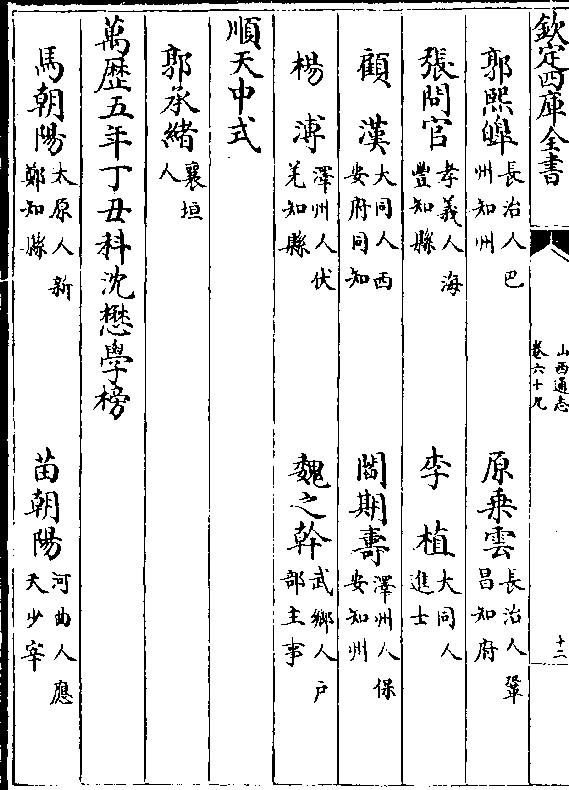 欽定四庫全書
山西通志
卷六十九
十二
郭熙皞 長治人巴
州知州
原乗雲 長治人鞏
昌知府
張問官 孝義人海
豐知縣
李植 大同人
進士
顧漢 大同人西
安府同知
閻期壽 澤州人保
安知州
楊溥 澤州人伏
羌知縣
魏之幹 武鄉人户
部主事
順天中式
郭承緒 襄垣
人
萬歴五年丁丑科沈懋學榜
馬朝陽 太原人新
鄭知縣
苗朝陽 河曲人應
天少宰